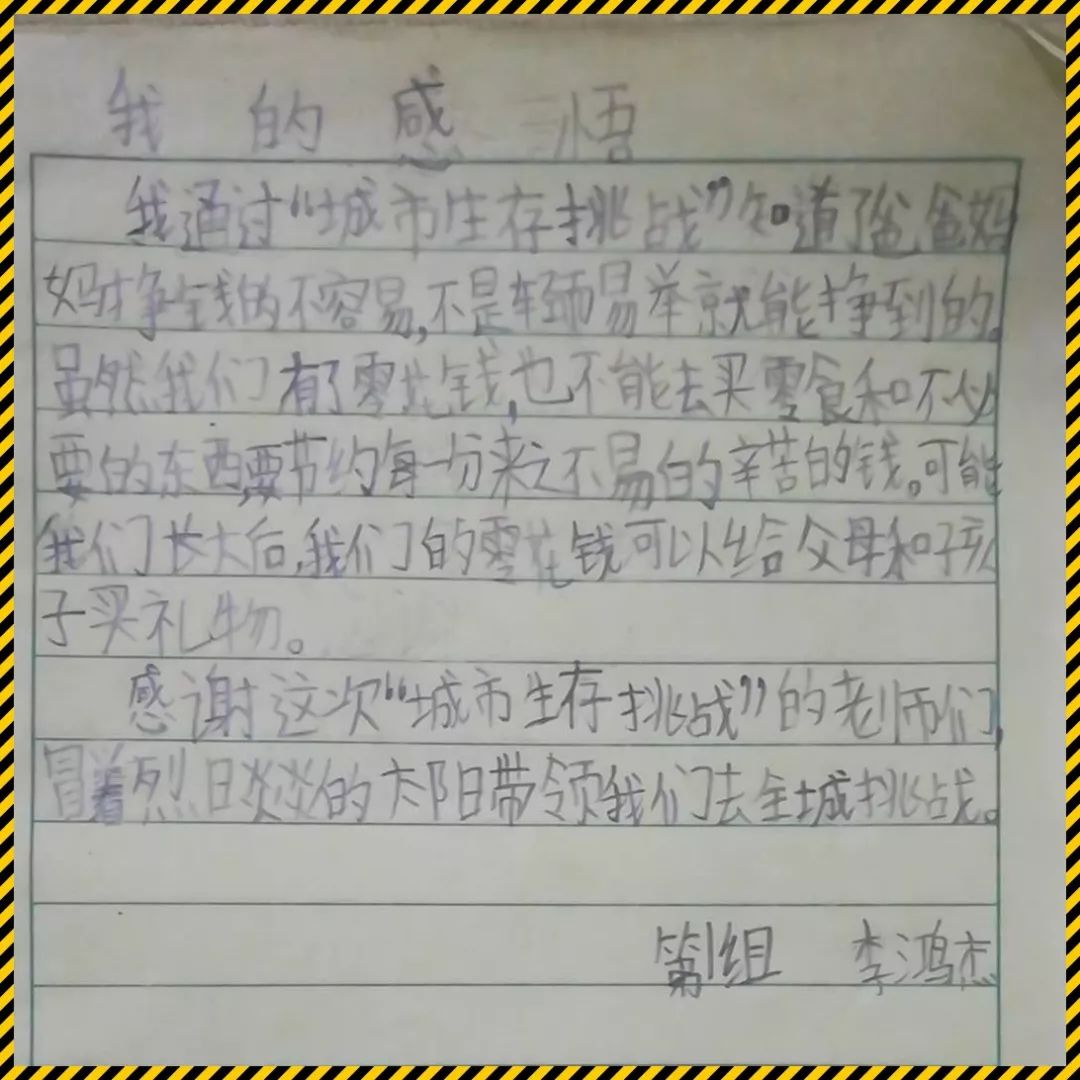 我的感悟
我通过“城市生存挑战”知道了爸爸妈
妈挣钱的不容易,不是轻而易举就能挣到的。
虽然我们有了零花钱,也不能去买零食和不必
要的东西,要节约每一分来之不易的辛苦的钱。可能
我们长大后,我们的零花钱可以给父母和孩
子买礼物。
感谢这次“城市生存挑战”的老师们,
冒着烈日炎炎的太阳带领我们去全城挑战。
第1组 李鸿杰